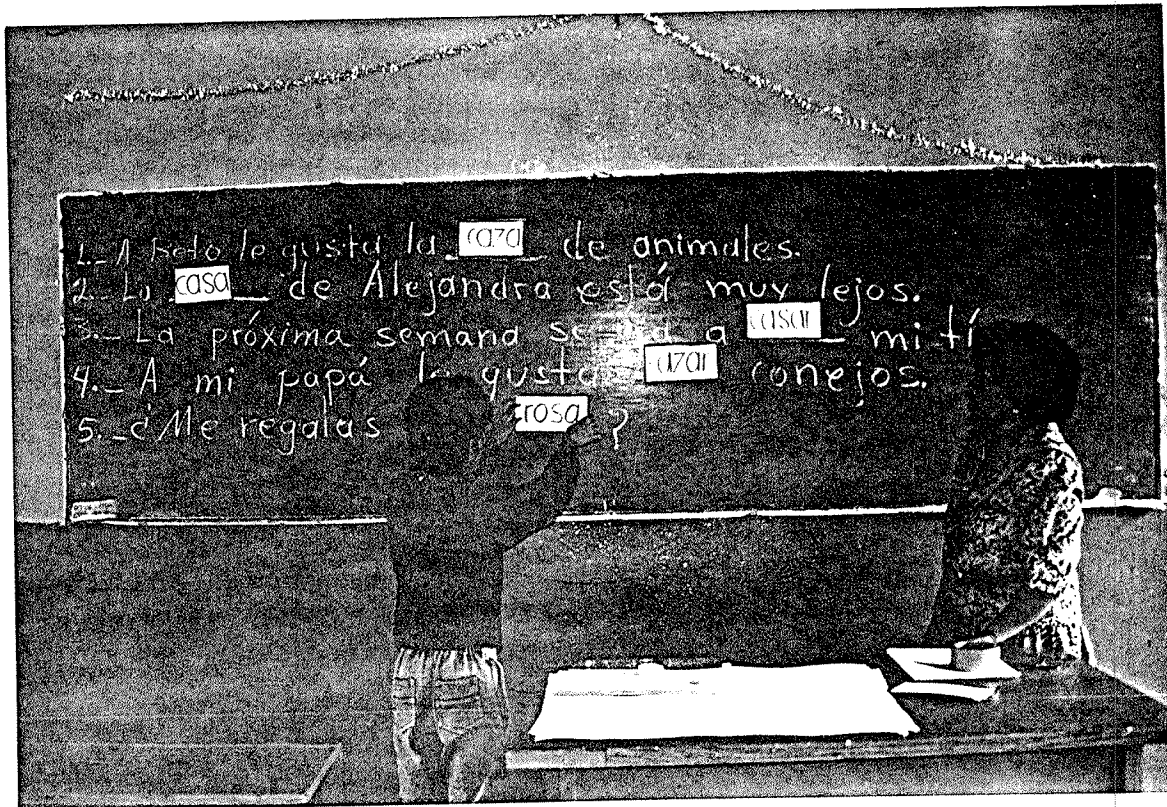 1.- A Beto le gusta la caza de animales.
2.- La casa de Alejandra está muy lejos.
3.- La próxima semana se a casar mi tí
4.- A mi papá le gusta cazar conejos.
5.- ¿Me regalas rosa ?